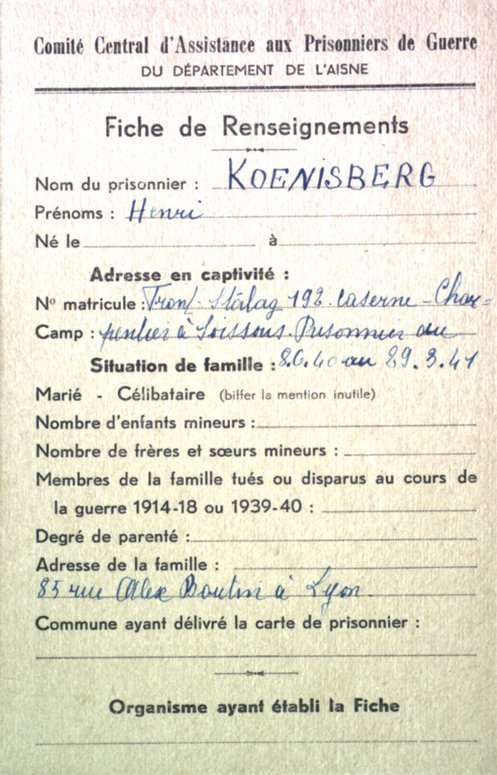 Comité Central d'Assistance aux Prisonniers de Guerre
DU DÉPARTEMENT DE L'AISNE
Fiche de Renseignements
Nom du prisonnier : KOENISBERG
Prénoms : Henri
Né le à
Adresse en captivité :
No matricule : Front-Stalag 192 Caserne-Char-
Camp : pentier à Soissons. Prisonnier du
Situation de famille : 8.6.40 au 29.3.41
Marié - Célibataire (biffer la mention inutile)
Nombre d'enfants mineurs :
Nombre de frères et sœurs mineurs :
Membres de la famille tués ou disparus au cours de
la guerre 1914-18 ou 1939-40 :
Degré de parenté :
Adresse de la famille :
85 rue Alex Boutin à Lyon
Commune ayant délivré la carte de prisonnier :
Organisme ayant établi la Fiche